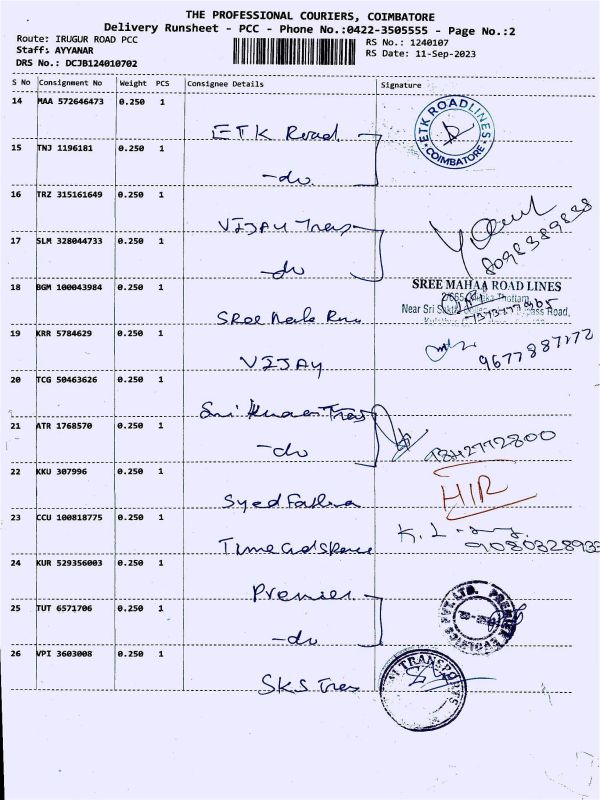 THE PROFESSIONAL COURIERS, COIMBATORE
Delivery Runsheet - PCC - Phone No.:0422-3505555 - Page No.:2
Route: IRUGUR ROAD PCC
RS No.: 1240107
Staff: AYYANAR
RS Date: 11-Sep-2023
DRS No.: DCJB124010702
S No Consignment No Weight PCS Consignee Details Signature
14 MAA 572646473 0.250 1
ETK Road
ETK ROADLINES
COIMBATORE
15 TNJ 1196181 0.250 1
-do
16 TRZ 315161649 0.250 1
VIJAY Tres
8098389838
17 SLM 328044733 0.250 1
-do
18 BGM 100043984 0.250 1
SREE MAHAA ROAD LINES
Thottam,
Near Sri Road,
Sree
19 KRR 5784629 0.250 1
VIJAY
20 TCG 50463626 0.250 1
21 ATR 1768570 0.250 1
-do
22 KKU 307996 0.250 1
Syed
HIR
23 CCU 100818775 0.250 1
K. L
24 KUR 529356003 0.250 1
Premier
25 TUT 6571706 0.250 1
-do
PVT. LTD.
26 VPI 3603008 0.250 1
SKS Tres
TRANSPORTS